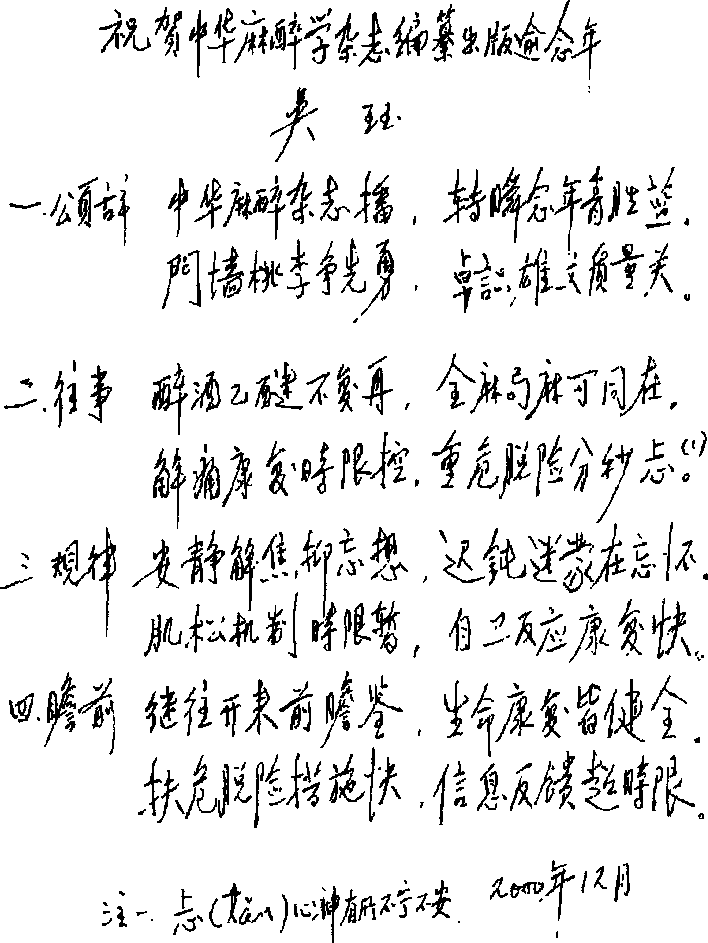 祝贺中华麻醉学杂志编纂出版逾念年
吴 珏
一.颂辞 中华麻醉杂志播, 转瞬念年青胜蓝.
門墙桃李争先勇, 卓识雄文质量关。
二.往事 醉酒乙醚不复再, 全麻局麻可同在.
解痛康复時限控, 重危脱险分秒忐。(1)
三.規律 安静解焦抑忘想, 迟鈍迷蒙在忘怀.
肌松机制時限暂, 自卫反应康复快。
四.瞻前 继往开来前瞻鉴, 生命康复皆健全.
扶危脱险措施快, 信息反馈超時限。
注一. 忐( )心神有所不宁不安. 2000年12月